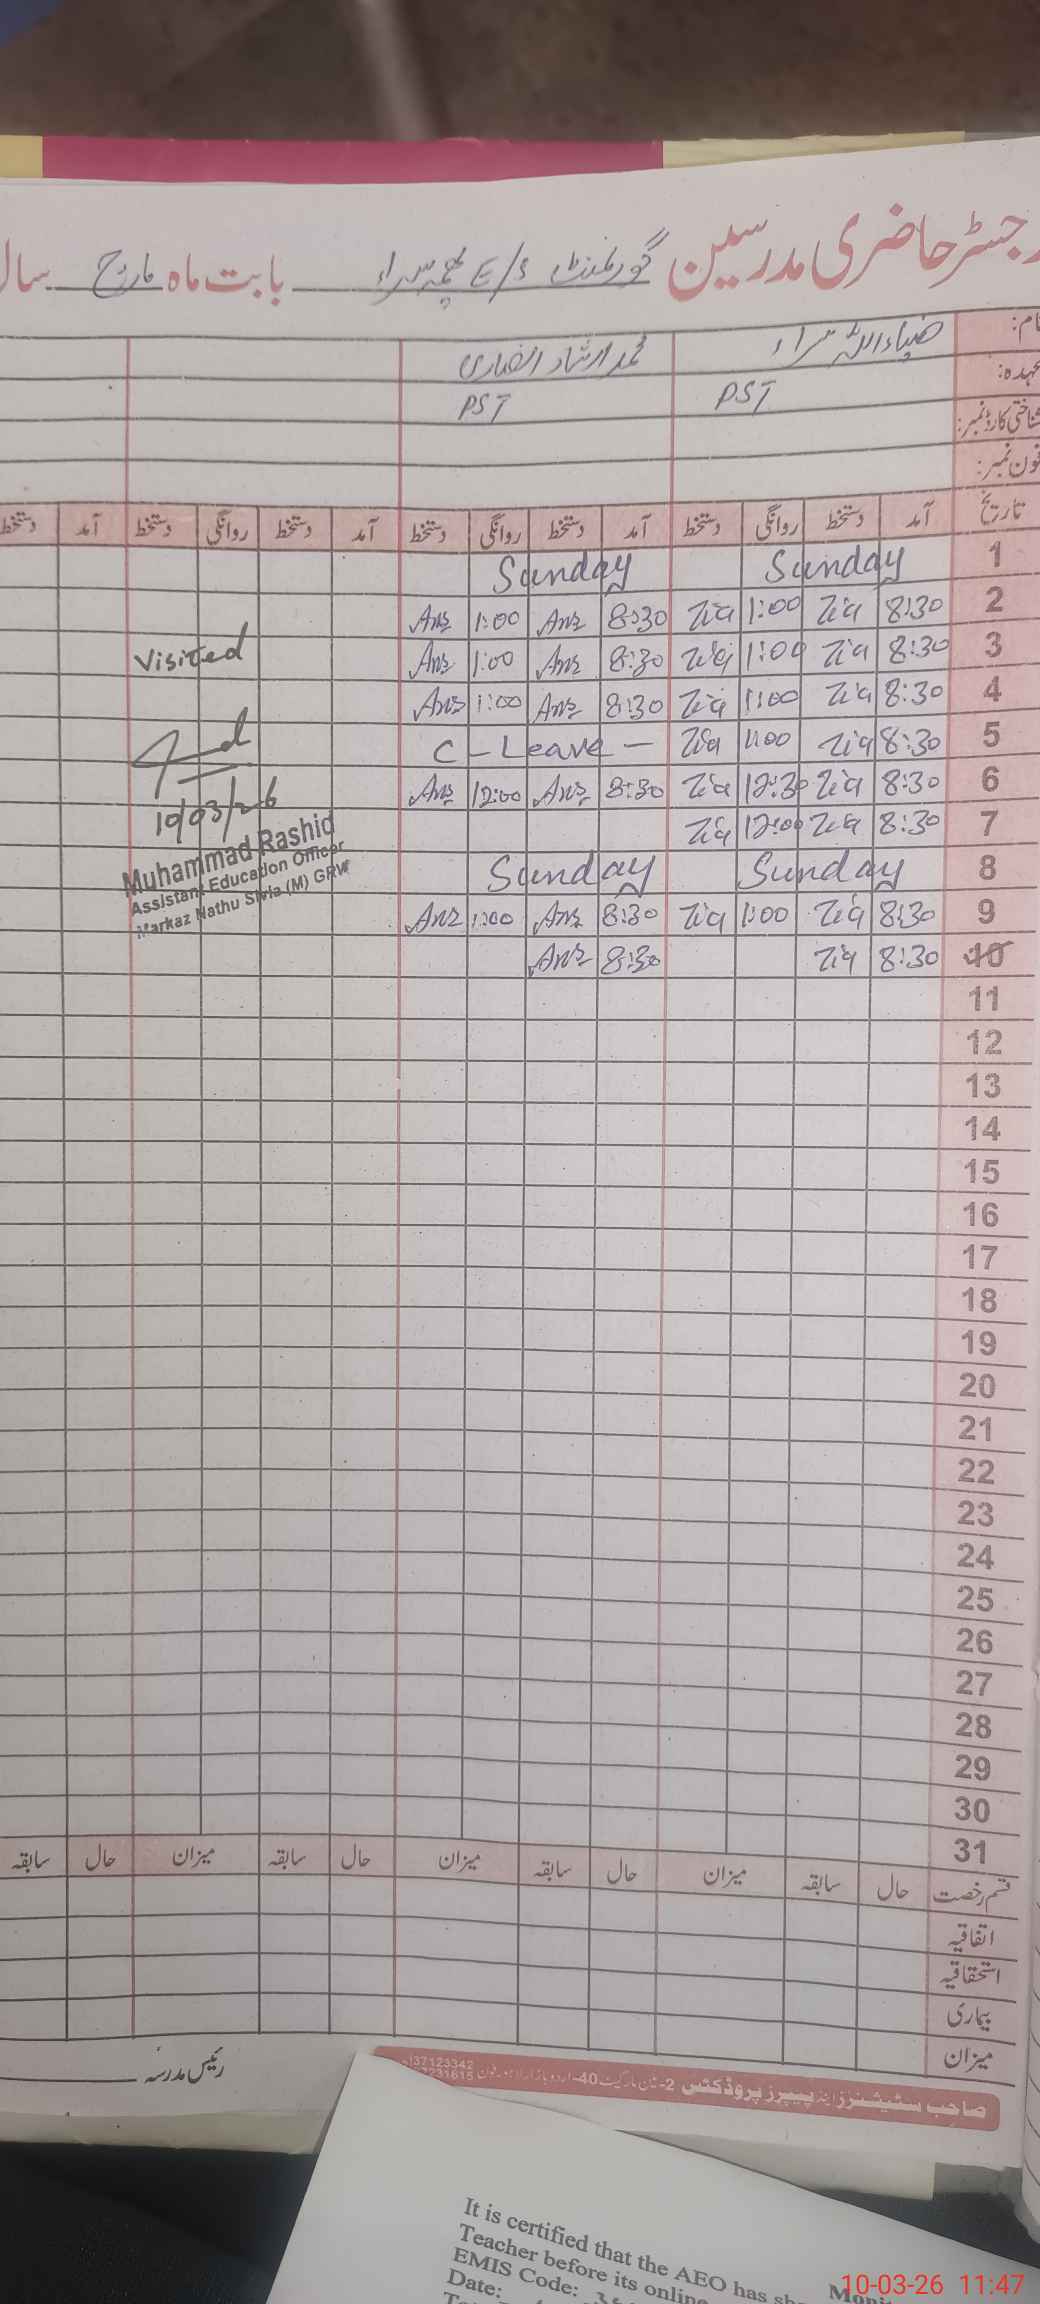 رجسٹر حاضری مدرسین گورنمنٹ E/S بابت ماہ مارچ سال
نام: ضیاءاللہ سراء محمد ارشاد انصاری
عہدہ: PST PST
شناختی کارڈ نمبر:
فون نمبر:
تاریخ آمد دستخط روانگی دستخط آمد دستخط روانگی دستخط آمد دستخط روانگی دستخط آمد دستخط
1 Sunday Sunday
2 8:30 Zia 1:00 Zia 8:30 Ans 1:00 Ans
3 8:30 Zia 1:00 Zia 8:30 Ans 1:00 Ans
4 8:30 Zia 1:00 Zia 8:30 Ans 1:00 Ans
5 8:30 Zia 1:00 Zia C - Leave -
6 8:30 Zia 12:30 Zia 8:30 Ans 12:00 Ans
7 8:30 Zia 12:00 Zia
8 Sunday Sunday
9 8:30 Zia 1:00 Zia 8:30 Ans 1:00 Ans
10 8:30 Zia 8:30 Ans
Visited
10/03/26
Muhammad Rashid
Assistant Education Officer
Markaz Nathu Sivia (M) GRW
11
12
13
14
15
16
17
18
19
20
21
22
23
24
25
26
27
28
29
30
31
قسم رخصت حال سابقہ میزان حال سابقہ میزان حال سابقہ میزان حال سابقہ
اتفاقیہ
استحقاقیہ
بیماری
میزان
رئیس مدرسہ
صاحب سٹیشنرز اینڈ پیپرز پروڈکٹس 2-ٹن مارکیٹ 40-اردو بازار لاہور فون 37123342
It is certified that the AEO has
Teacher before its online
EMIS Code:
Date:
10-03-26 11:47